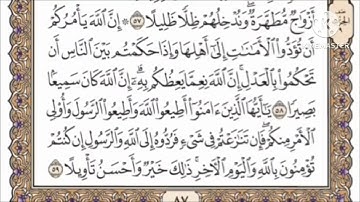 أَزْوَٰجٌ مُّطَهَّرَةٌ ۖ وَنُدْخِلُهُمْ ظِلًّا ظَلِيلًا ٥٧ ۞ إِنَّ ٱللَّهَ يَأْمُرُكُمْ
أَن تُؤَدُّوا۟ ٱلْأَمَٰنَٰتِ إِلَىٰٓ أَهْلِهَا وَإِذَا حَكَمْتُم بَيْنَ ٱلنَّاسِ أَن
تَحْكُمُوا۟ بِٱلْعَدْلِ ۚ إِنَّ ٱللَّهَ نِعِمَّا يَعِظُكُم بِهِۦٓ ۗ إِنَّ ٱللَّهَ كَانَ سَمِيعًۢا
بَصِيرًا ٥٨ يَٰٓأَيُّهَا ٱلَّذِينَ ءَامَنُوٓا۟ أَطِيعُوا۟ ٱللَّهَ وَأَطِيعُوا۟ ٱلرَّسُولَ وَأُو۟لِى
ٱلْأَمْرِ مِنكُمْ ۖ فَإِن تَنَٰزَعْتُمْ فِى شَىْءٍ فَرُدُّوهُ إِلَى ٱللَّهِ وَٱلرَّسُولِ إِن كُنتُمْ
تُؤْمِنُونَ بِٱللَّهِ وَٱلْيَوْمِ ٱلْءَاخِرِ ۚ ذَٰلِكَ خَيْرٌ وَأَحْسَنُ تَأْوِيلًا ٥٩
٨٧